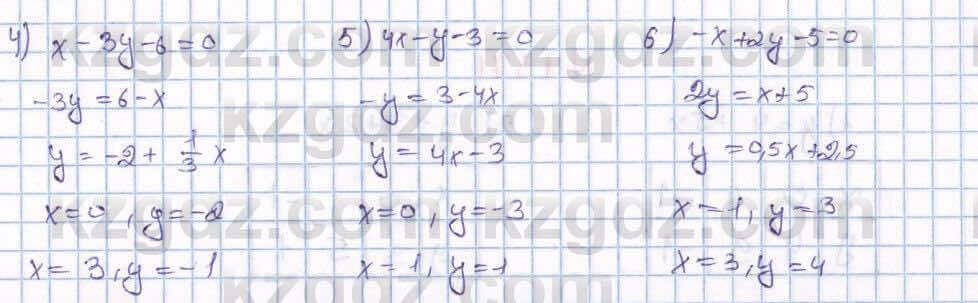 4) x - 3y - 6 = 0
-3y = 6 - x
y = -2 + 1/3 x
x = 0, y = -2
x = 3, y = -1
5) 4x - y - 3 = 0
-y = 3 - 4x
y = 4x - 3
x = 0, y = -3
x = 1, y = 1
6) -x + 2y - 5 = 0
2y = x + 5
y = 0,5x + 2,5
x = 1, y = 3
x = 3, y = 4
kzgdz.com
kzgdz.com
kzgdz.com
kzgdz.com